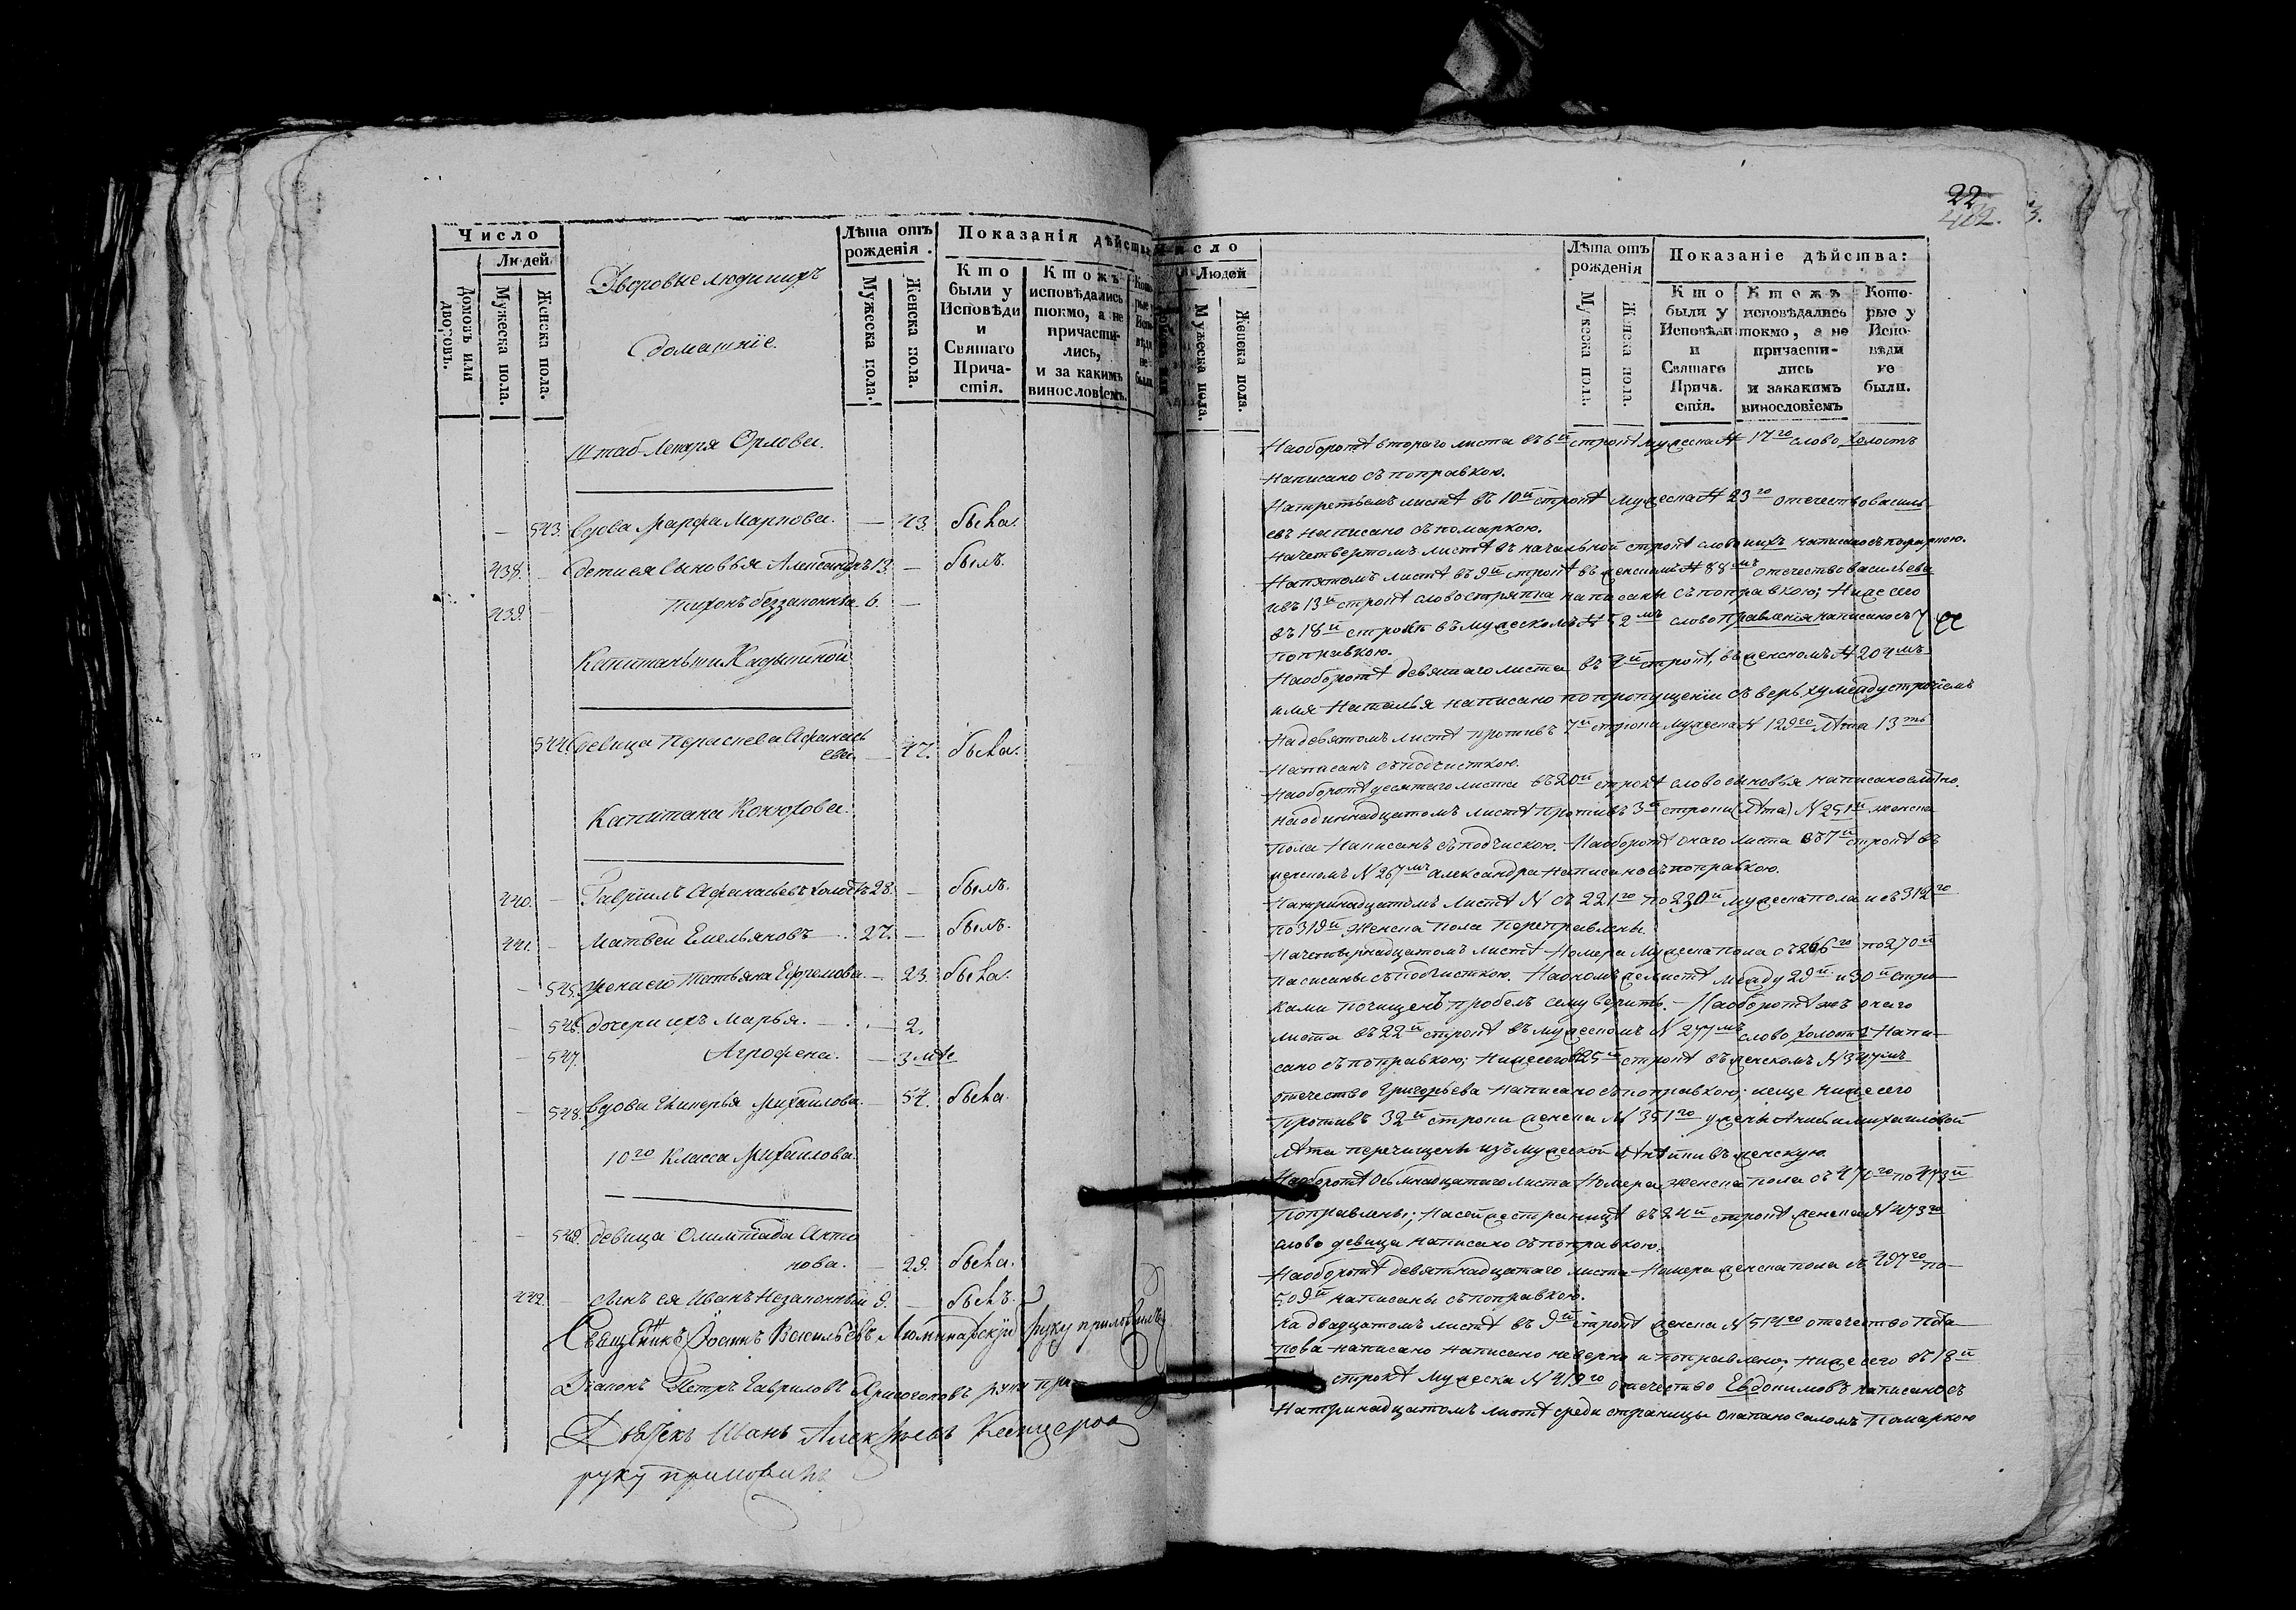 Число
Людей
Домовъ или дворовъ.
Мужеска пола.
Женска пола.
Дворовые люди ихъ
домашніе.
Лѣта отъ рожденія.
Мужеска пола.
Женска пола.
Показанія дѣйства
Кто были у Исповѣди и Святаго Причастія.
Ктожъ исповѣдались токмо, а не причастились, и за какимъ винословіемъ.
Штаб Лекаря Орлова.
— 543. вдова Марфа Маркова. — 43. была.
438. — дети ея сыновья Александръ 13. — былъ.
439. — Тихонъ беззаконный. 6. —
Капитанъши
544. девица Парасковья Афанась
ева. — 47. была.
Капитана Конюхова.
440. — Гавріилъ Афанасьевъ холостъ 28. — былъ.
441. — Матвей Емельяновъ. 27. — былъ.
— 545. жена его Татьяна Ефремова. — 23. была.
— 546. дочери ихъ Марья. — 2.
— 547. Агрофена. — 3 мѣс
— 548. вдова Гликерья Михайлова. — 54. была.
10го класса Михайлова.
— 549. девица Олимпіада Анто
нова. — 29. была.
442. — сынъ ея Иванъ Незаконный 9. — былъ.
Священникъ Іоаннъ Васильевъ руку приложилъ
Діаконъ Петръ Гавриловъ руку при
Дьячекъ Иванъ Алексѣевъ
руку приложилъ
22
3.
Число
Людей
Мужеска пола.
Женска пола.
Лѣта отъ рожденія
Мужеска пола.
Женска пола.
Показаніе дѣйства:
Кто были у Исповѣди и Святаго Причастія.
Ктожъ исповѣдались токмо, а не причастились и за какимъ винословіемъ
Которые у Исповѣди не были.
На оборотѣ втораго листа въ 6й строкѣ мужеска № 17го слово холостъ
написано съ поправкою.
На третьемъ листѣ въ 10й строкѣ мужеска № 23го отечество василь
евъ написано съ помаркою.
На четвертомъ листѣ въ начальной строкѣ слово ихъ написано съ помаркою.
На пятомъ листѣ въ 9й строкѣ въ женскомъ № 88мъ отечество васильева
и въ 13й строкѣ слово стряпка написаны съ поправкою; Ниже сего
въ 18й строкѣ въ мужескомъ № 52мъ слово правленія написано съ
поправкою.
На оборотѣ девятаго листа въ 4й строкѣ, въ женскомъ № 204мъ
имя Наталья написано по пропущеніи съ верьху между строкъ
На девятомъ листѣ противъ 7й строки мужеска № 129го лѣта 13ть
Написанъ съ подчисткою.
На оборотѣ десятаго листа въ 20й строкѣ слово сыновья написано
На одиннадцатомъ листѣ противъ 3й строки (лѣта) № 251й женска
пола Написанъ съ подчискою. На оборотѣ онаго листа въ 7й строкѣ въ
женскомъ № 267мъ александра написано съ поправкою.
На тринадцатомъ листѣ № съ 221го по 230й мужеска пола и съ 312го
по 319й женска пола переправлены.
На четырнадцатомъ листѣ Номера Мужеска пола съ 266го по 270й
написаны съ подчисткою. На ономъ же листѣ между 29й и 30й стро
ками почищенъ пробелъ сему верить. — На оборотѣ жъ онаго
листа въ 22й строкѣ въ мужескомъ № 277мъ слово холостъ Напи
сано съ поправкою; Ниже сего въ 25й строкѣ въ женскомъ № 347мъ
отечество Григорьева написано съ поправкою; и еще ниже сего
противъ 32й строки женска № 351го у жены Анны Михайловой
лѣта перечищены изъ мужеской линіи въ женскую.
На оборотѣ осьмнадцатаго листа Номера женска пола съ 470го по 473й
поправлены; на сей же страницѣ въ 24й строкѣ женска № 473го
слово девица написано съ поправкою.
На оборотѣ девятнадцатаго листа Номера женска пола съ 497го по
509й написаны съ поправкою.
На двадцатомъ листѣ въ 9й строкѣ женска № 514го отечество Пота
пова написано написано неверно и поправлено; ниже сего въ 18й
строкѣ мужеска № 419го отечество Евдокимовъ написано съ
На тринадцатомъ листѣ среди страницы окапано саломъ Помаркою